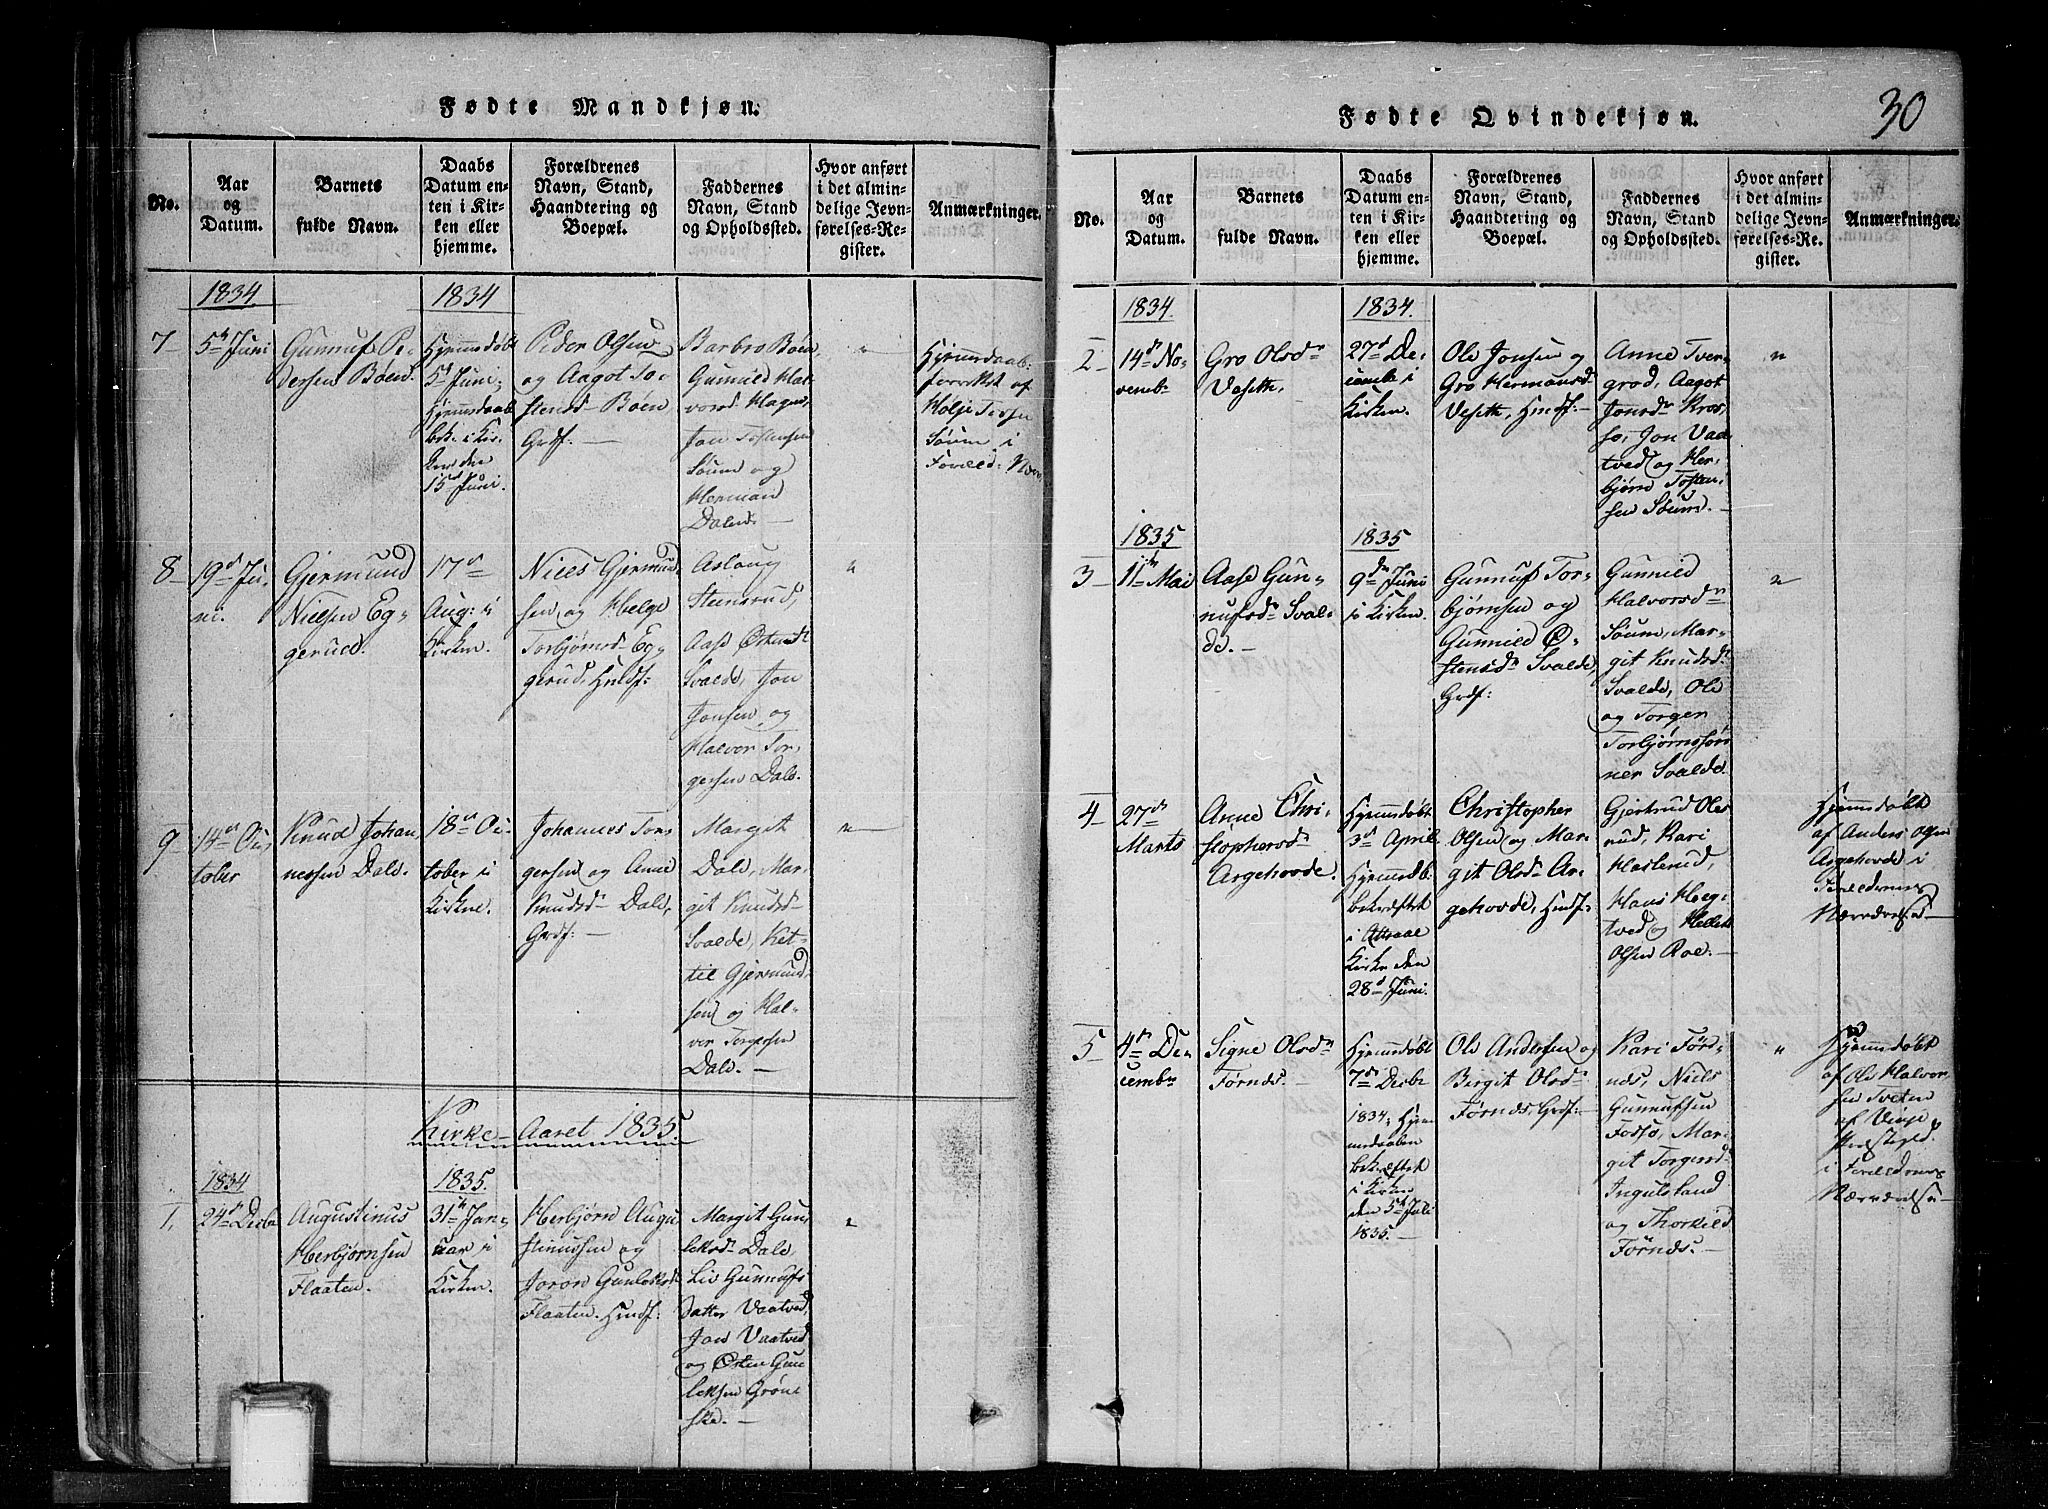 Fødte Mandkjøn.
No.
Aar
og
Datum.
Barnets
fulde Navn.
Daabs
Datum en-
ten i Kir-
ken eller
hjemme.
Forældrenes
Navn, Stand,
Haandtering og
Boepæl.
Faddernes
Navn, Stand
og Opholdssted.
Hvor anført
i det almin-
delige Jevn-
førelses-Re-
gister.
Anmærkninger.
1834
1834
7
5te Juni
Gunnuf Pe-
dersen Bøen.
Hjemmdøbt
5te Juni
Hjemmdaab.
bek. i Kir-
ken den
15de Juni.
Peder Olsen
og Aagot To-
stensd. Bøen
Grdf.
Barbro Bøen,
Gunild Hal-
vorsd. Hagen,
Jon Tostensen
Søum og
Herman
Dalen.
"
Hjemmdaab.
forrettet af
Holje
Søum i
Foreld:
8
19de Ju-
ni.
Gjermund
Nielsen Eg-
gerud.
17de
Aug: i
Kirken.
Niels Gjermund-
sen og Helge
Torbjørnsd. Eg-
gerud, Hmdf:
Aslaug
Stensrud,
Aase Østensd.
Svalde, Jon
Jonsen og
Halvor Tor-
gersen Dale.
"
9
14de Oc-
tober
Knud Johan-
nessen Dale.
18de Oc-
tober i
Kirken.
Johannes Tor-
gersen og Anne
Knudsd. Dale,
Grdf:
Margit
Dale, Mar-
git Knudsd.
Svalde, Ket-
til Gjermund-
sen og Hal-
vor Torgersen
Dale.
"
Kirke-Aaret 1835.
1834
1835.
1.
24de Decbr
Augustinus
Herbjørnsen
Flaaten.
31te Jan-
uar i
Kirken.
Herbjørn Augu-
stinussen og
Joron Gunleksd.
Flaaten. Hmdf:
Margit Gun-
leksd. Dale
Liv Gunnufs-
datter Vaatved,
Jon Vaatved
og Østen Gun-
leksen Grøne-
ske.
"
Fødte Qvindekjøn.
30
No.
Aar
og
Datum.
Barnets
fulde Navn.
Daabs
Datum en-
ten i Kir-
ken eller
hjemme.
Forældrenes
Navn, Stand,
Haandtering og
Boepæl.
Faddernes
Navn, Stand
og Opholdssted.
Hvor anført
i det almin-
delige Jevn-
førelses-Re-
gister.
Anmærkninger.
1834
1834.
2
14de No-
vembr
Gro Olsdr
Veseth.
27de De-
cembr i
Kirken.
Ole Jonsen og
Gro Hermansd.
Veseth, Hmdf:
Anne Tver-
grod, Aagot
Jonsdr Kros-
so, Jon Vaa-
tved og Her-
bjørn Tosten-
sen Søum.
"
1835
1835
3
11te Mai
Aase Gun-
nufsdr Sval-
de.
9de Juni
i Kirken.
Gunnuf Tor-
bjørnsen og
Gunnild Ø-
stensdr Svalde,
Grdf:
Gunnild
Halvorsdr
Søum, Mar-
git Knudsd.
Svalde, Ole
og Torger
Torbjørnssøn-
ner Svalde.
"
4
27de
Marts
Anne Chri-
stophersd
Argehovde.
Hjemmdøbt
3de April
Hjemmdb.
bekræftet
i Attraae
Kirke den
28de Juni.
Christopher
Olsen og Mar-
git Olsd. Ar-
gehovde, Hmdf:
Gjertrud Ols-
rud, Kari
Haslerud,
Hans Heg-
tved og Hellek
Olsen Roe.
Hjemmdøbt
af Anders Olsen
Argehovde i
Foreldrenes
Nærværelse
5
4de De-
cembr
Signe Olsdr
Førnds.
Hjemmdøbt
7de Decbr
1834, Hjem-
mdaaben
bekræftet
i Kirken
den 5te Juli
1835.
Ole Andersen og
Birgit Olsd.
Førnds, Grdf:
Kari Førn-
nds, Niels
Gunnufsen
Fodsø, Mar-
git Torgersd.
Ingulsland
og Thorkild
Førnds.
"
Hjemmdøbt
af Ole Halvor-
sen Tveten
af Vinje
Præstegjeld
i Foreldrenes
Nærværelse